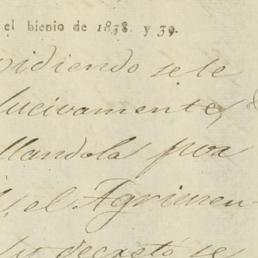 el bienio de 1838. y 39.
vidiendo se le
lucivamente,
llandola por
el Agrimen-
decretó se